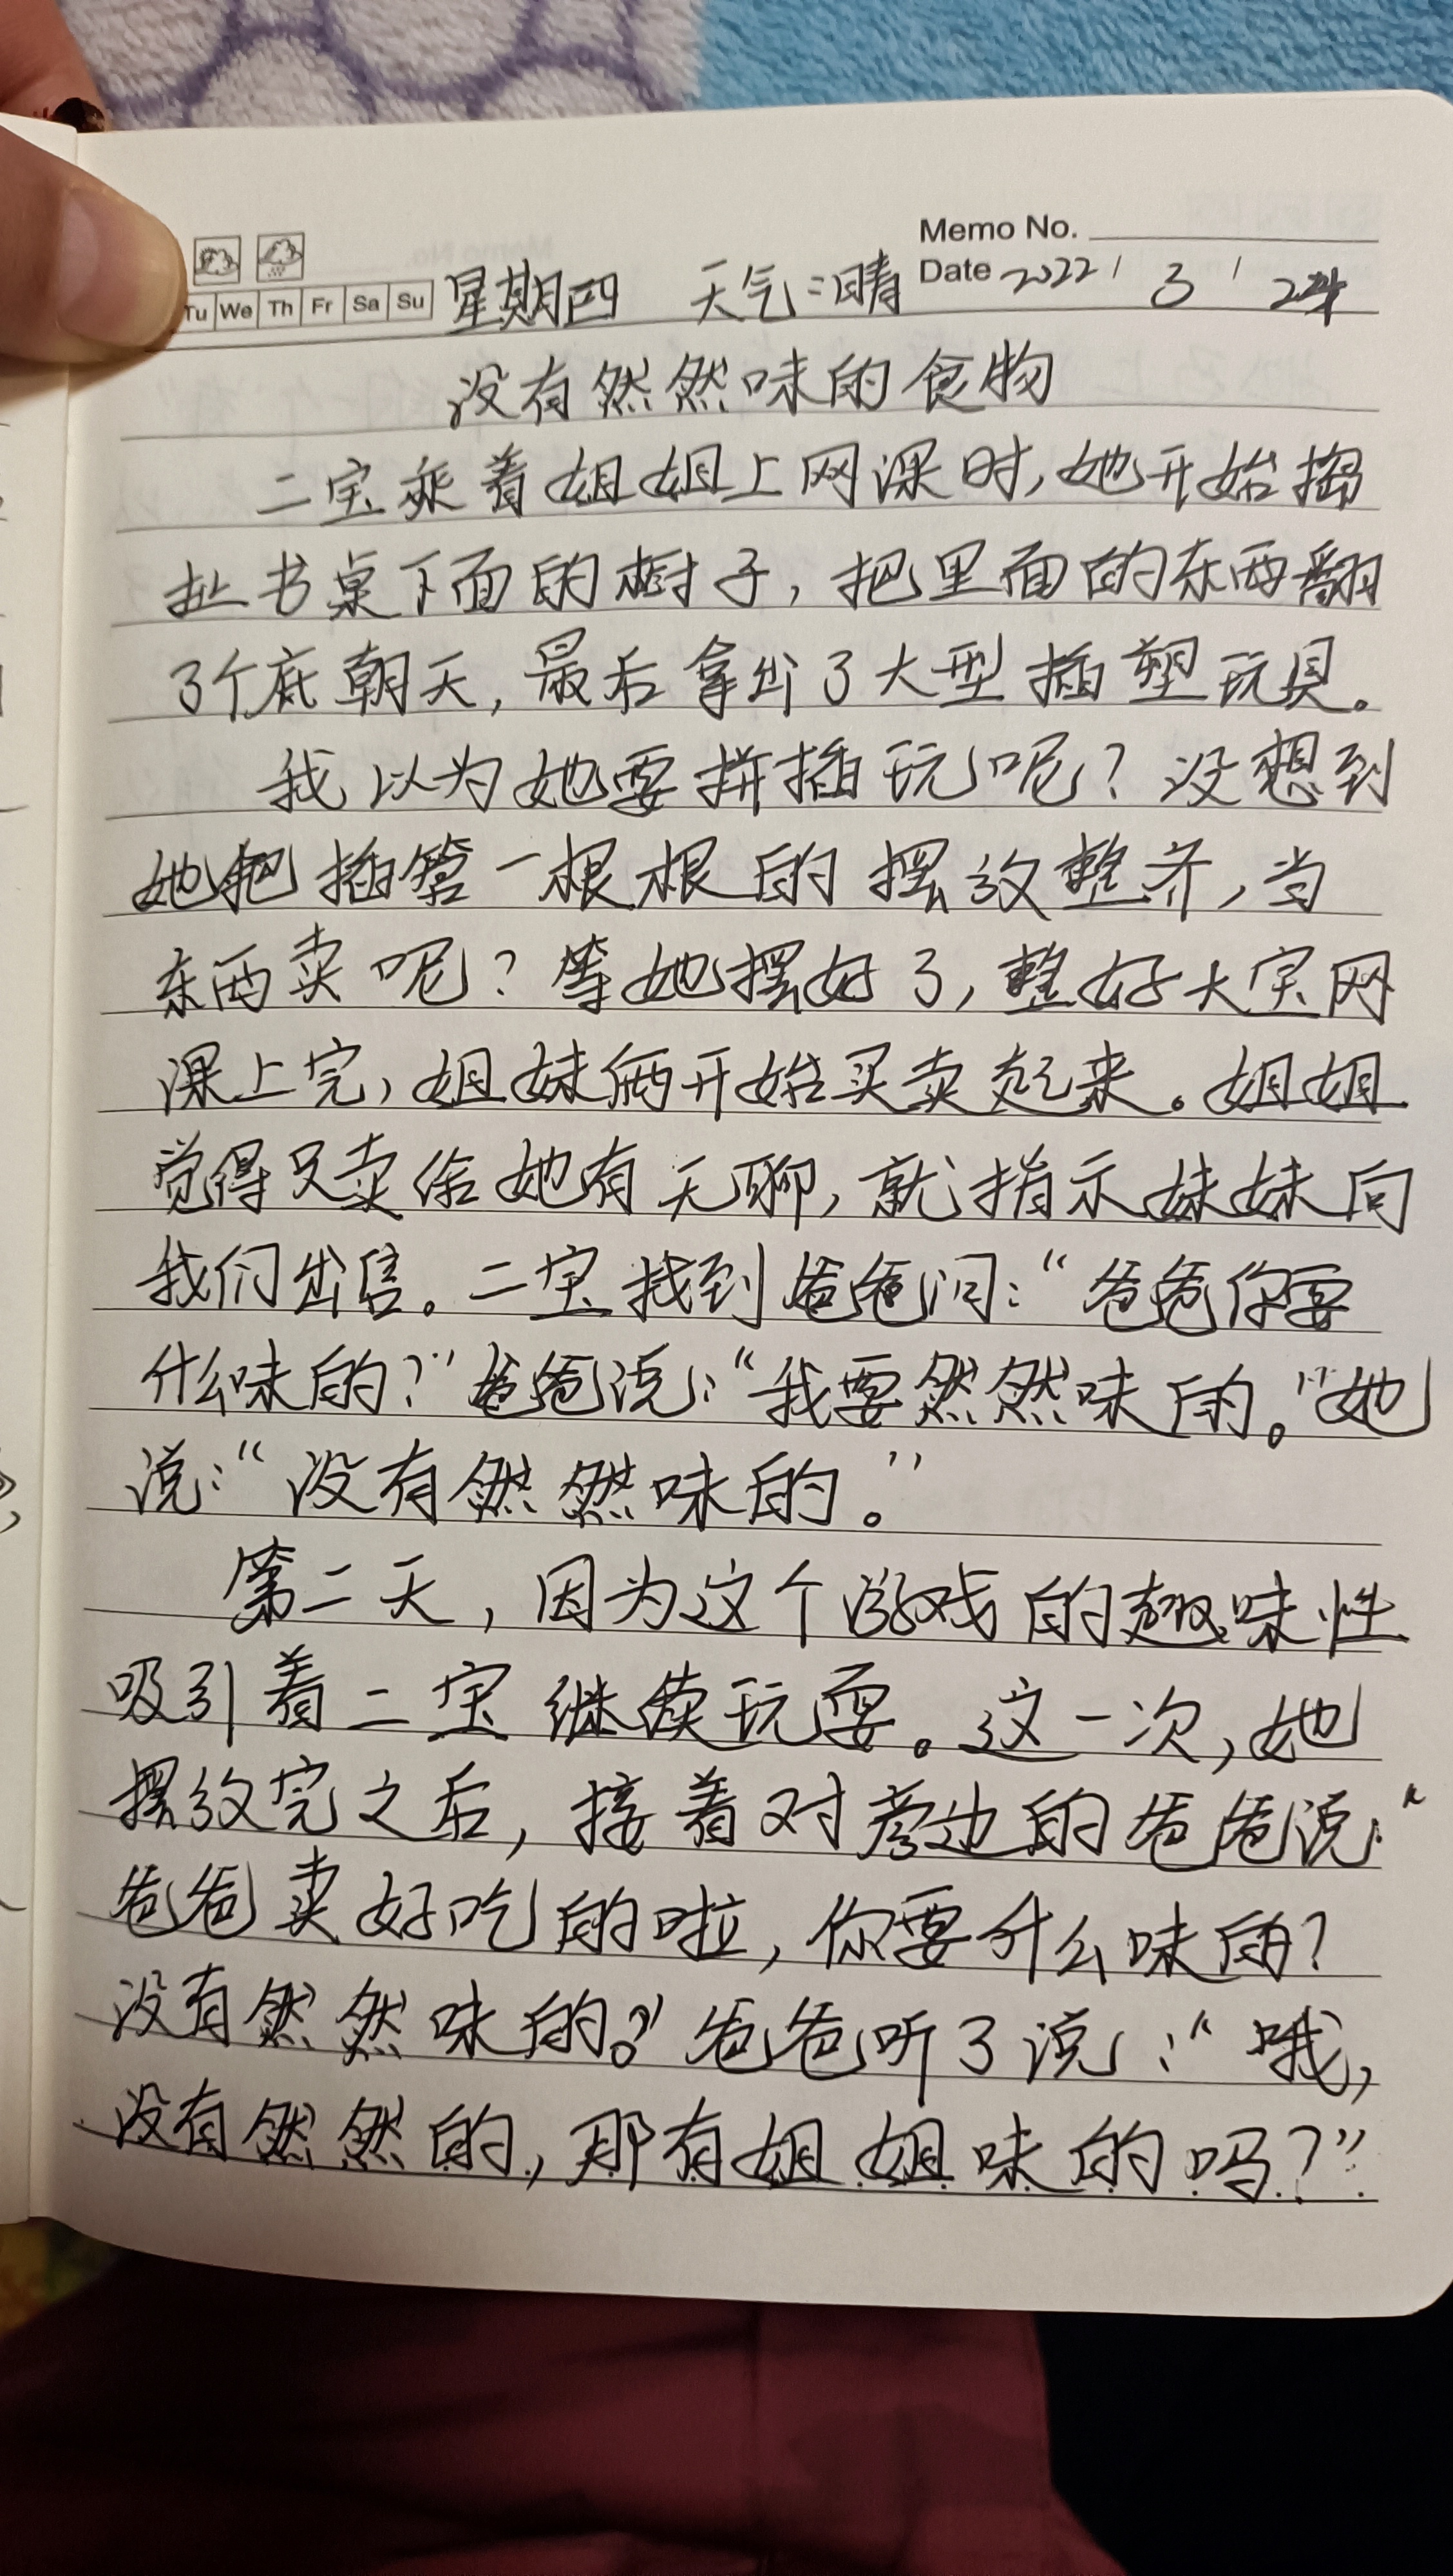 Memo No.
Tu We Th Fr Sa Su 星期四 天气:晴 Date 2022 / 3 / 24
没有然然味的食物
二宝乘着姐姐上网课时,她开始捣
扯书桌下面的橱子,把里面的东西翻
了个底朝天,最后拿出了大型插塑玩具。
我以为她要拼插玩呢?没想到
她把插管一根根的摆放整齐,当
东西卖呢?等她摆好了,整好大宝网
课上完,姐妹俩开始买卖起来。姐姐
觉得只卖给她有无聊,就指示妹妹向
我们出售。二宝找到爸爸问:“爸爸你要
什么味的?”爸爸说:“我要然然味的。”她
说:“没有然然味的。”
第二天,因为这个游戏的趣味性
吸引着二宝继续玩耍。这一次,她
摆放完之后,接着对旁边的爸爸说:“
爸爸卖好吃的啦,你要什么味的?
没有然然味的。”爸爸听了说:“哦,
没有然然的,那有姐姐味的吗?”